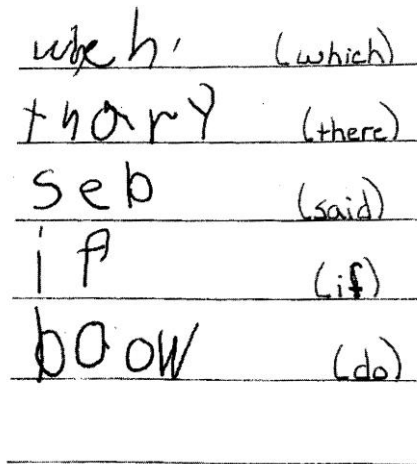 wheh. (which)
thary (there)
seb (said)
if (if)
boow (do)